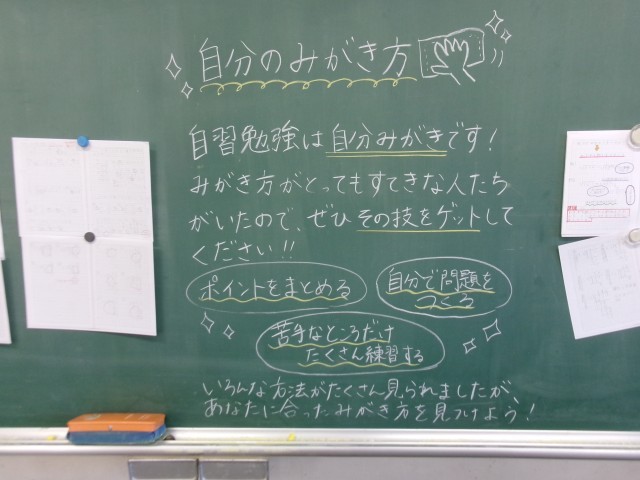 自分のみがき方
自習勉強は自分みがきです!
みがき方がとってもすてきな人たち
がいたので、ぜひその技をゲットして
ください!!
ポイントをまとめる
自分で問題を
つくる
苦手なところだけ
たくさん練習する
いろんな方法がたくさん見られましたが、
あなたに合ったみがき方を見つけよう!